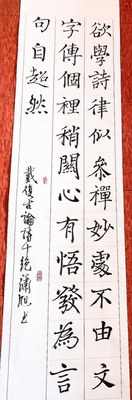 欲學詩律似參禪妙處不由文
字傳個裡稍關心有悟發為言
句自超然
戴復古論詩十絕